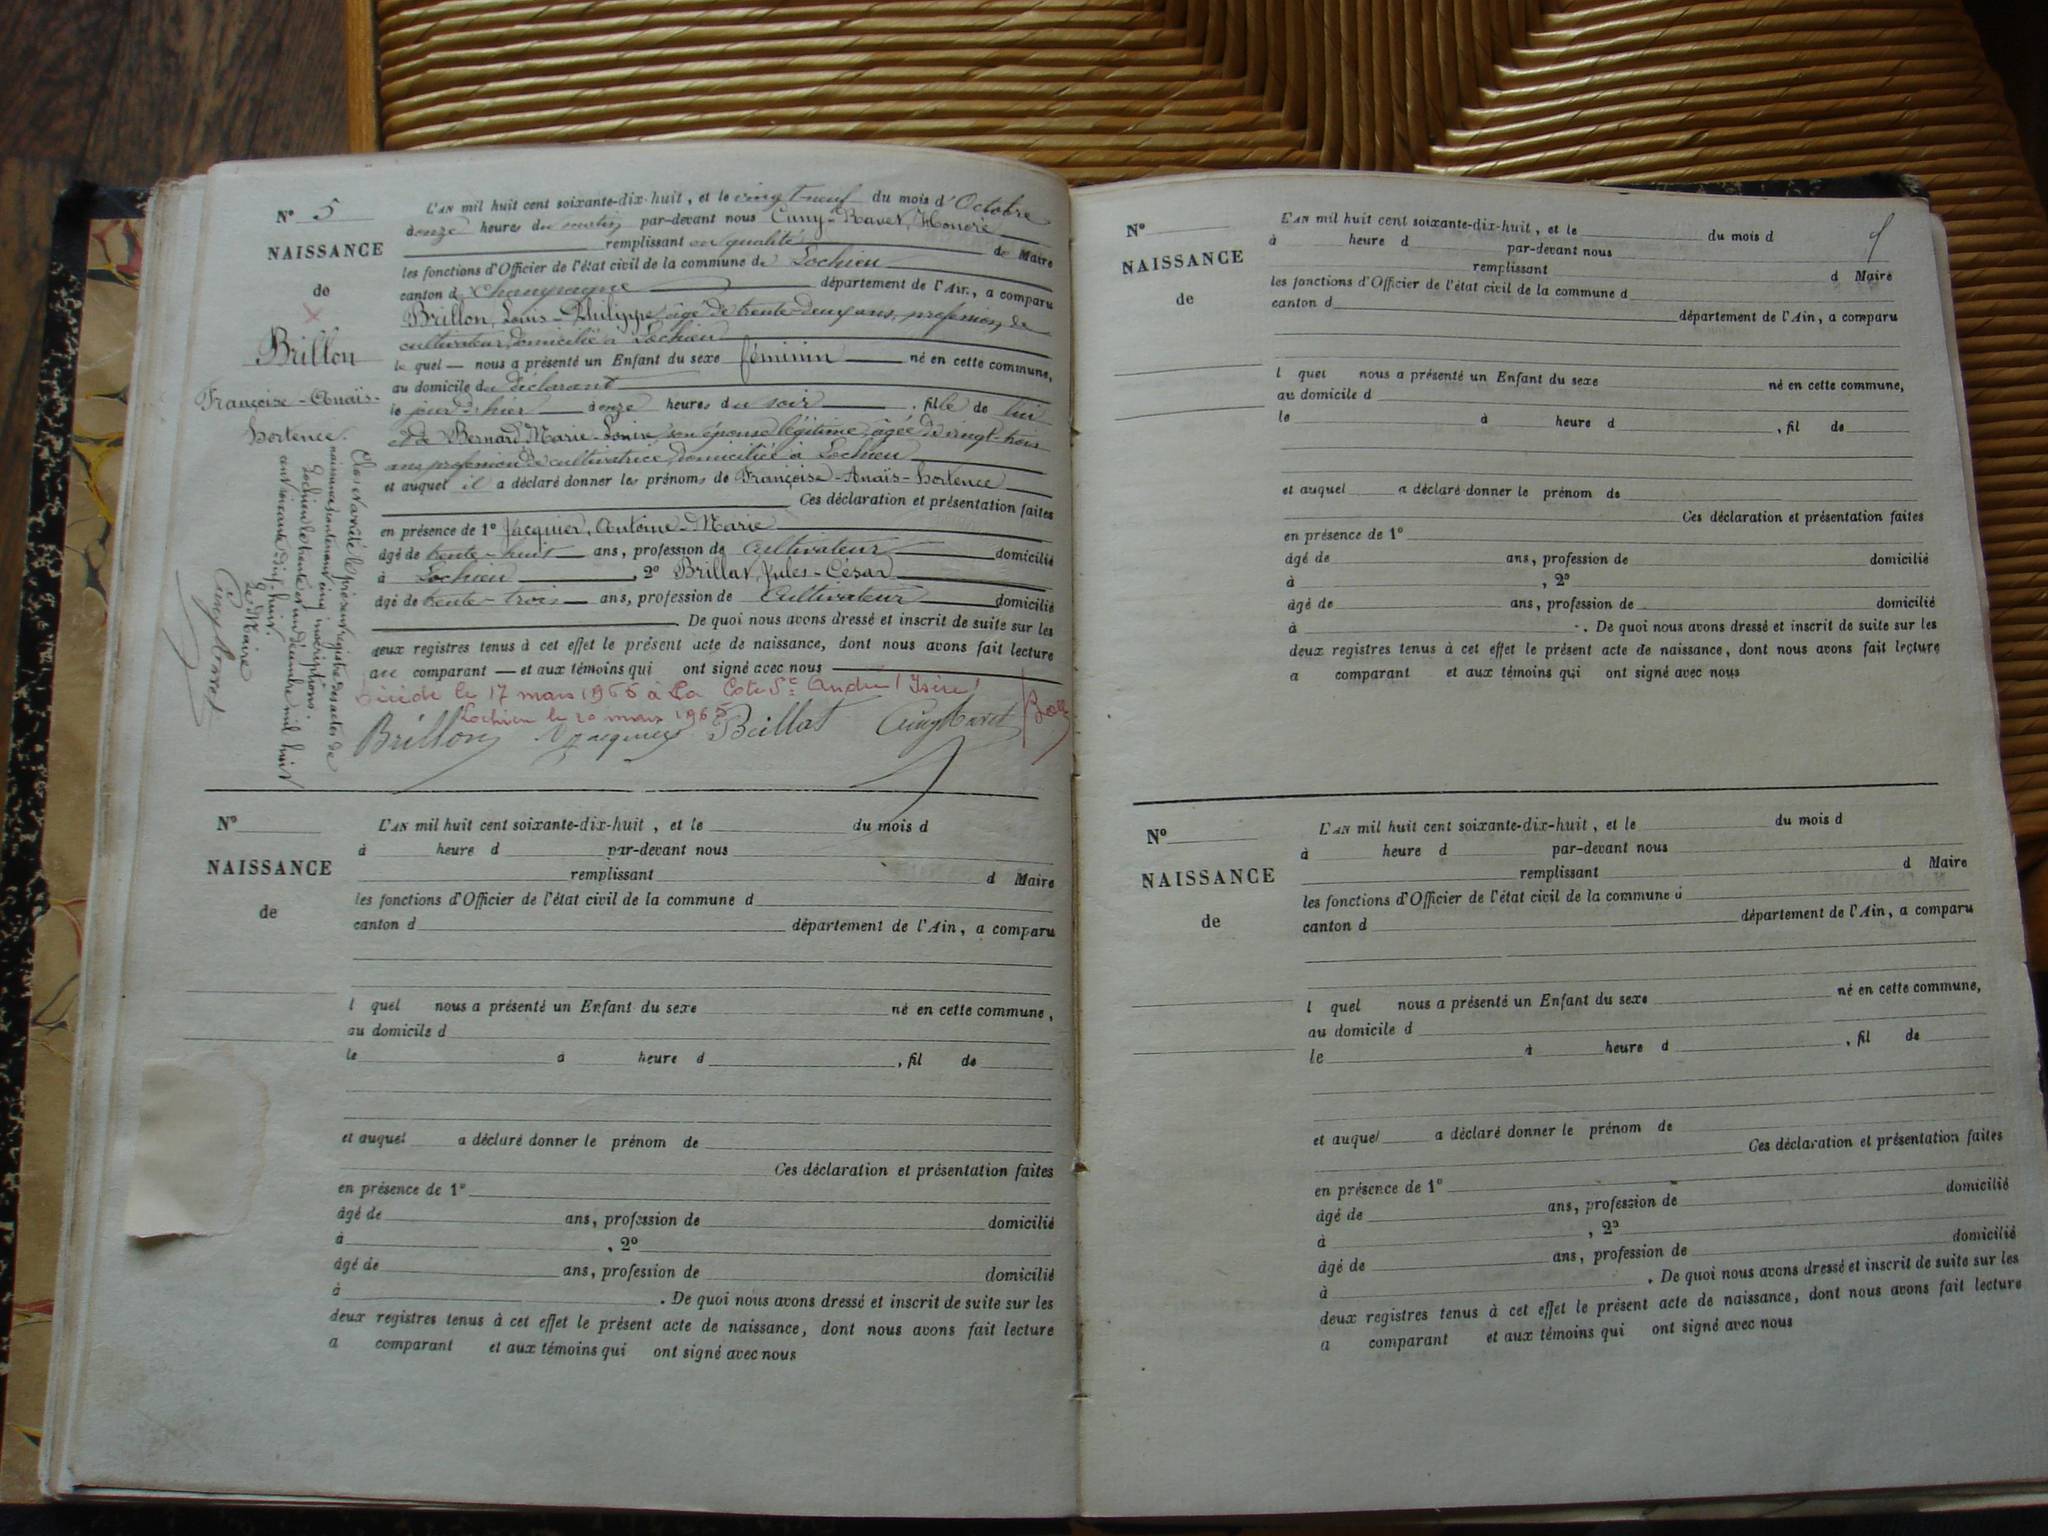 N° 5
NAISSANCE
de
Brillon
Françoise-Anaïs-
Hortence.
L'AN mil huit cent soixante-dix-huit, et le vingt neuf du mois d'Octobre
à onze heures du matin par-devant nous Cuny-Ravet, Honoré
remplissant en qualité de Maire
les fonctions d'Officier de l'état civil de la commune de Lochieu
canton de Champagne département de l'Ain, a comparu
Brillon, Louis-Philippe, âgé de trente-deux ans, profession de
cultivateur, domicilié à Lochieu
le quel nous a présenté un Enfant du sexe féminin né en cette commune,
au domicile du déclarant
le jour d'hier à onze heures du soir, fille de lui
et de Bernard Marie-Louise, son épouse légitime, âgée de vingt-trois
ans, profession de cultivatrice, domiciliée à Lochieu
et auquel il a déclaré donner les prénoms de Françoise-Anaïs-Hortence
Ces déclaration et présentation faites
en présence de 1° Jacquier, Antoine-Marie
âgé de trente-huit ans, profession de cultivateur domicilié
à Lochieu, 2° Brillat, Jules-César
âgé de trente-trois ans, profession de cultivateur domicilié
De quoi nous avons dressé et inscrit de suite sur les
deux registres tenus à cet effet le présent acte de naissance, dont nous avons fait lecture
au comparant et aux témoins qui ont signé avec nous
Décédée le 17 mars 1965 à La Cote St André (Isère)
Lochieu le 20 mars 1965
Brillon Jacquier Brillat Cuny Ravet
Clos et arrêté le présent registre des actes de
naissance contenant cinq inscriptions.
Lochieu le trente et un décembre mil huit
cent soixante dix huit
Le Maire
Cuny Ravet
N°
NAISSANCE
de
L'AN mil huit cent soixante-dix-huit, et le du mois d
à heure d par-devant nous
remplissant d Maire
les fonctions d'Officier de l'état civil de la commune d
canton d département de l'Ain, a comparu
l quel nous a présenté un Enfant du sexe né en cette commune,
au domicile d
le à heure d , fil de
et auquel a déclaré donner le prénom de
Ces déclaration et présentation faites
en présence de 1°
âgé de ans, profession de domicilié
à , 2°
âgé de ans, profession de domicilié
à . De quoi nous avons dressé et inscrit de suite sur les
deux registres tenus à cet effet le présent acte de naissance, dont nous avons fait lecture
a comparant et aux témoins qui ont signé avec nous
N°
NAISSANCE
de
L'AN mil huit cent soixante-dix-huit, et le du mois d
à heure d par-devant nous
remplissant d Maire
les fonctions d'Officier de l'état civil de la commune d
canton d département de l'Ain, a comparu
l quel nous a présenté un Enfant du sexe né en cette commune,
au domicile d
le à heure d , fil de
et auquel a déclaré donner le prénom de
Ces déclaration et présentation faites
en présence de 1°
âgé de ans, profession de domicilié
à , 2°
âgé de ans, profession de domicilié
à . De quoi nous avons dressé et inscrit de suite sur les
deux registres tenus à cet effet le présent acte de naissance, dont nous avons fait lecture
a comparant et aux témoins qui ont signé avec nous
N°
NAISSANCE
de
L'AN mil huit cent soixante-dix-huit, et le du mois d
à heure d par-devant nous
remplissant d Maire
les fonctions d'Officier de l'état civil de la commune d
canton d département de l'Ain, a comparu
l quel nous a présenté un Enfant du sexe né en cette commune,
au domicile d
le à heure d , fil de
et auquel a déclaré donner le prénom de
Ces déclaration et présentation faites
en présence de 1°
âgé de ans, profession de domicilié
à , 2°
âgé de ans, profession de domicilié
à . De quoi nous avons dressé et inscrit de suite sur les
deux registres tenus à cet effet le présent acte de naissance, dont nous avons fait lecture
a comparant et aux témoins qui ont signé avec nous